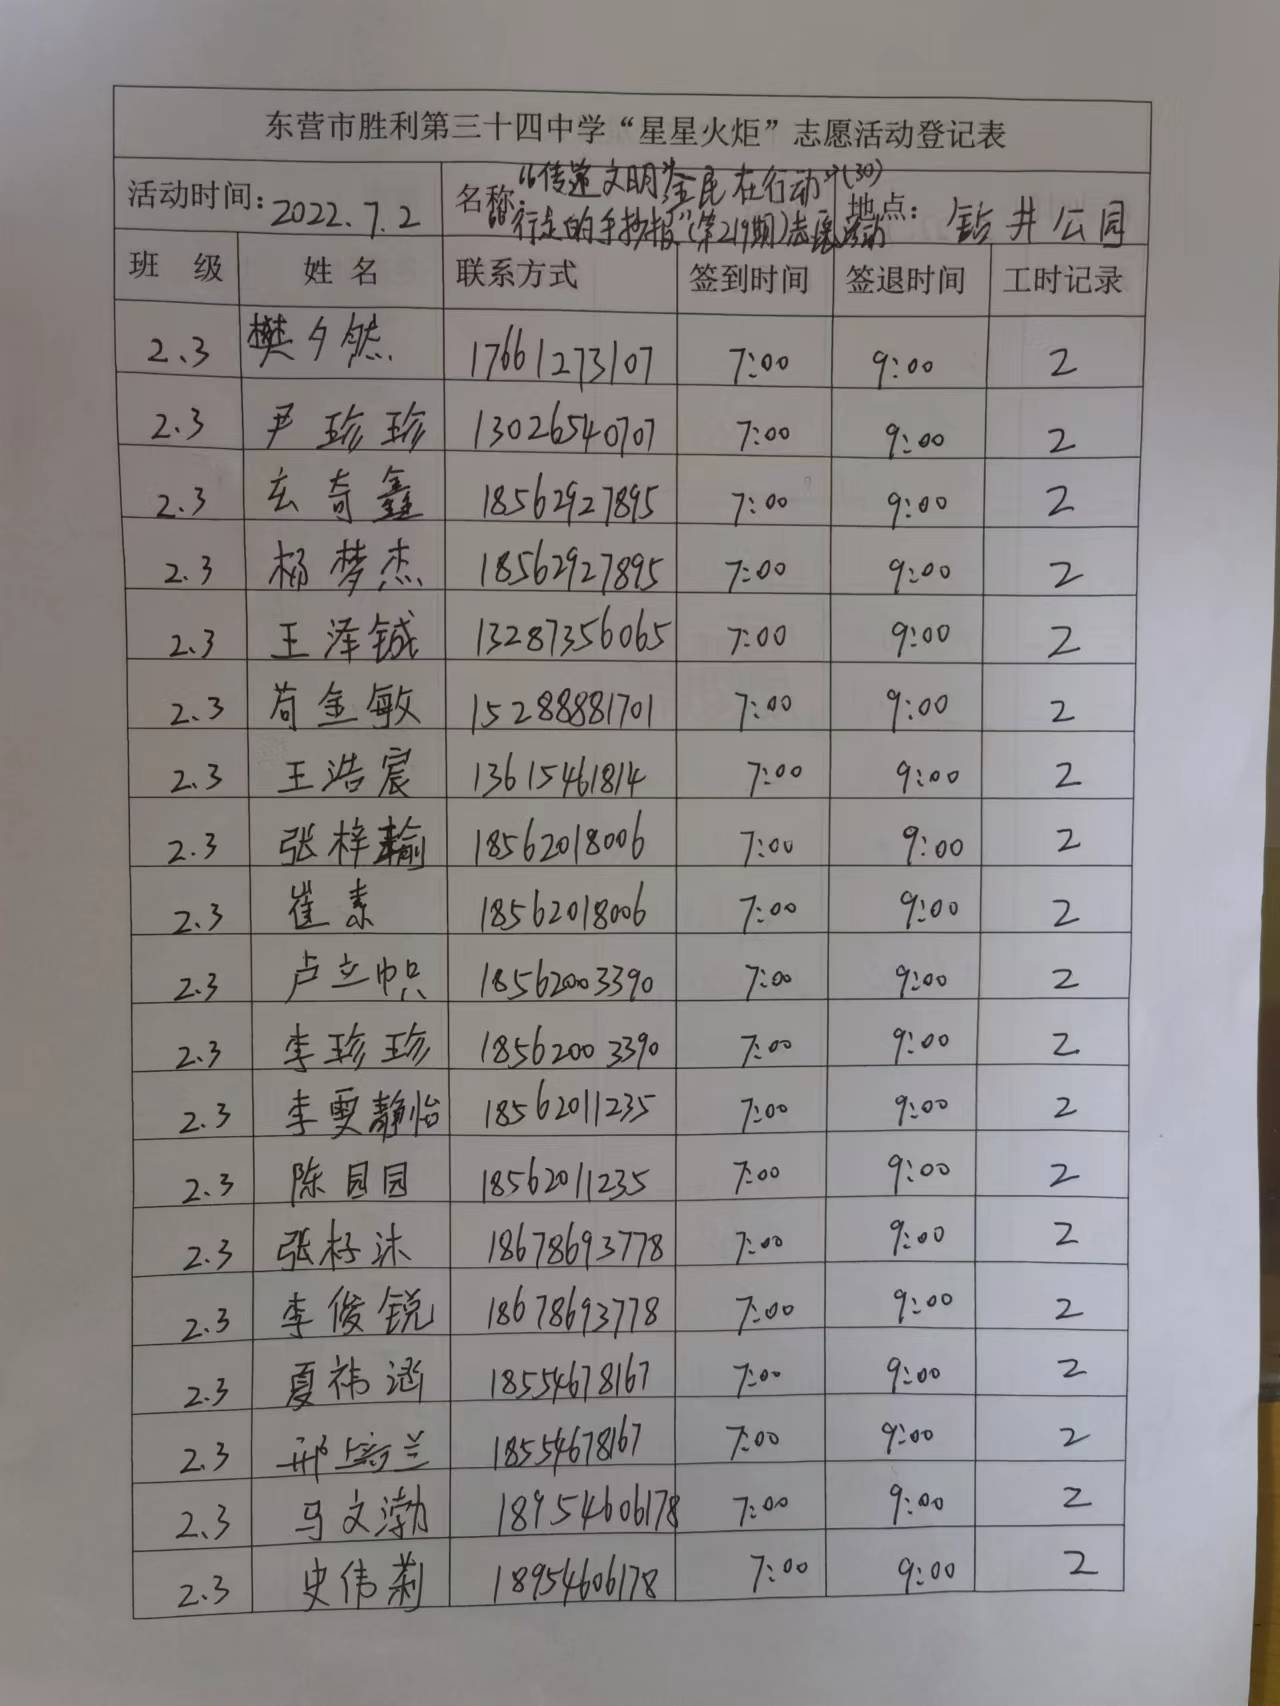 东营市胜利第三十四中学“星星火炬”志愿活动登记表
活动时间：2022.7.2 名称：“传递文明”全民在行动”(30) “行走的手抄报”(第219期)志愿活动 地点：钻井公园
班 级 姓 名 联系方式 签到时间 签退时间 工时记录
2.3 樊夕然 17661273107 7:00 9:00 2
2.3 尹珍珍 13026540707 7:00 9:00 2
2.3 玄奇鑫 18562927895 7:00 9:00 2
2.3 杨梦杰 18562927895 7:00 9:00 2
2.3 王泽铖 13287356065 7:00 9:00 2
2.3 苟金敏 15288881701 7:00 9:00 2
2.3 王浩宸 13615461814 7:00 9:00 2
2.3 张梓输 18562018006 7:00 9:00 2
2.3 崔素 18562018006 7:00 9:00 2
2.3 卢立帜 18562003390 7:00 9:00 2
2.3 李珍珍 18562003390 7:00 9:00 2
2.3 李雯静怡 18562011235 7:00 9:00 2
2.3 陈园园 18562011235 7:00 9:00 2
2.3 张杍沐 18678693778 7:00 9:00 2
2.3 李俊锐 18678693778 7:00 9:00 2
2.3 夏祎涵 18554678167 7:00 9:00 2
2.3 邢兰 18554678167 7:00 9:00 2
2.3 马文渤 18954606178 7:00 9:00 2
2.3 史伟莉 18954606178 7:00 9:00 2